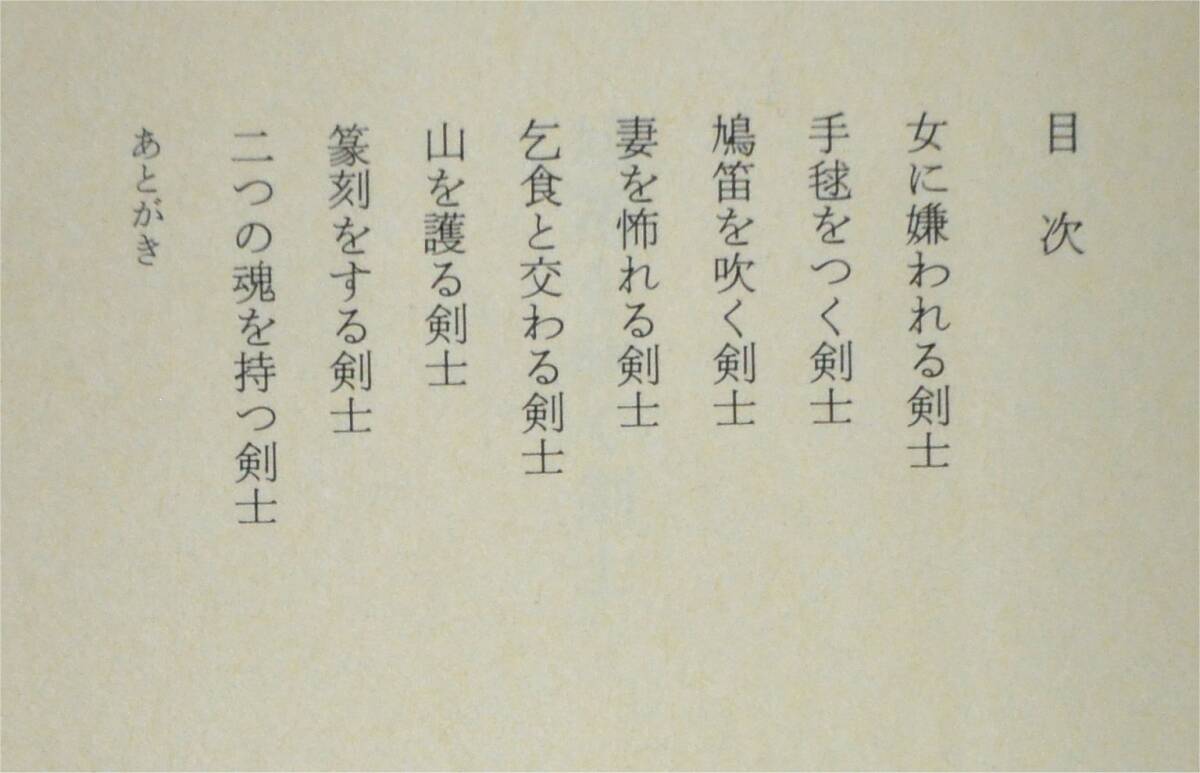 目次
女に嫌われる剣士
手毬をつく剣士
鳩笛を吹く剣士
妻を怖れる剣士
乞食と交わる剣士
山を護る剣士
篆刻をする剣士
二つの魂を持つ剣士
あとがき